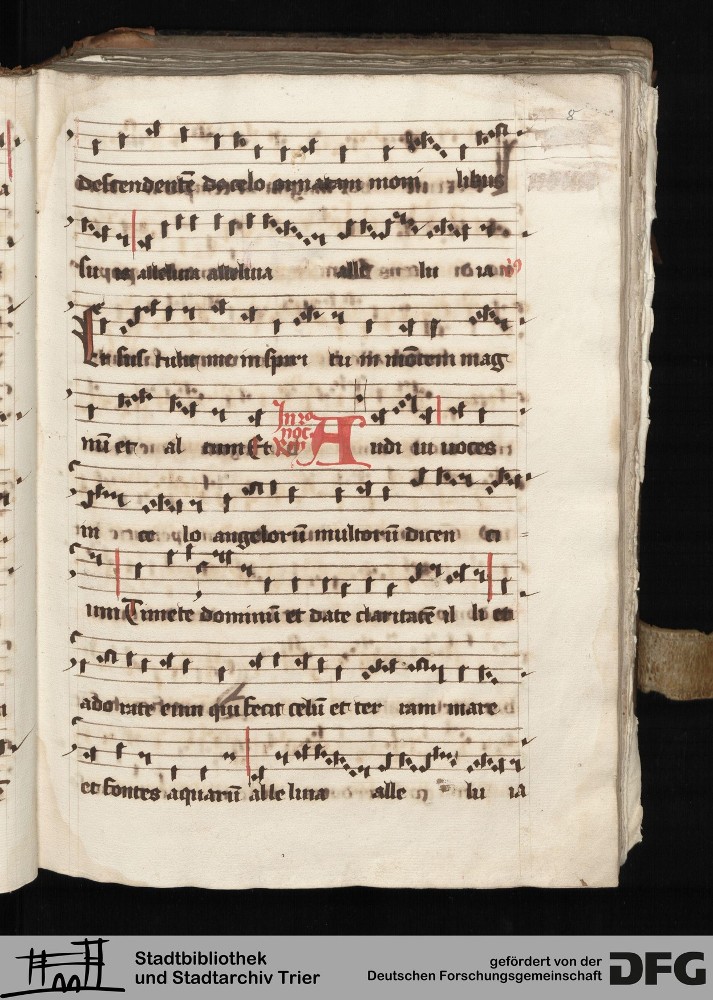 8
descendentē de celo ornatam moni libus
suis alleluia alleluia alle lu ia
Et sus tulit me in spiri tu in mōtem mag
nū et al tum Et A udi ui uoces
in ce lo angelorū multorū dicen ci
um Timete dominū et date claritatē il li et
ado rate eum qui fecit celū et ter ram mare
et fontes aquarū alle luia alle lu ia
Stadtbibliothek
und Stadtarchiv Trier
gefördert von der
Deutschen Forschungsgemeinschaft
DFG